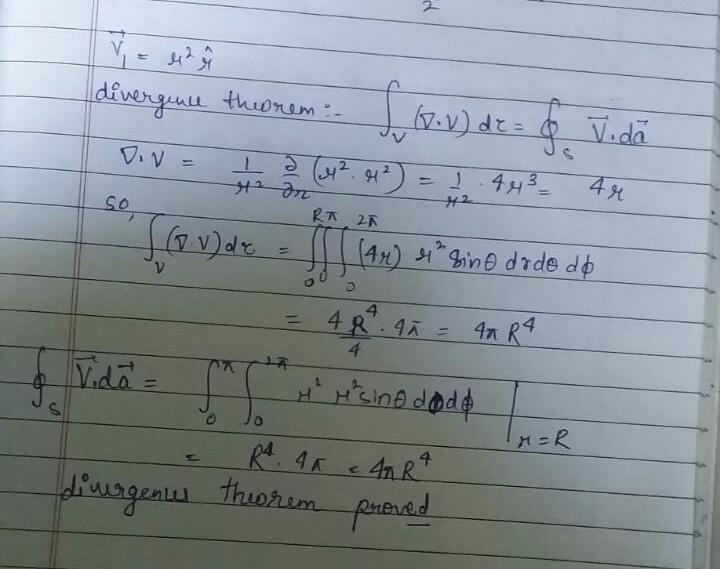 2
V⃗₁ = r² r̂
divergenve theorem :- ∫_V (∇·V) dτ = ∮_S V⃗·da⃗
∇·V = 1/r² ∂/∂r (r²·r²) = 1/r² · 4r³ = 4r
so,
∫_V (∇·V) dτ = ∫₀^R ∫₀^π ∫₀^2π (4r) r² sinθ dr dθ dφ
= 4R⁴/4 · 4π = 4πR⁴
∮_S V⃗·da⃗ = ∫₀^π ∫₀^2π r² r² sinθ dθ dφ |_r=R
= R⁴ · 4π = 4πR⁴
divergenve theorem proved